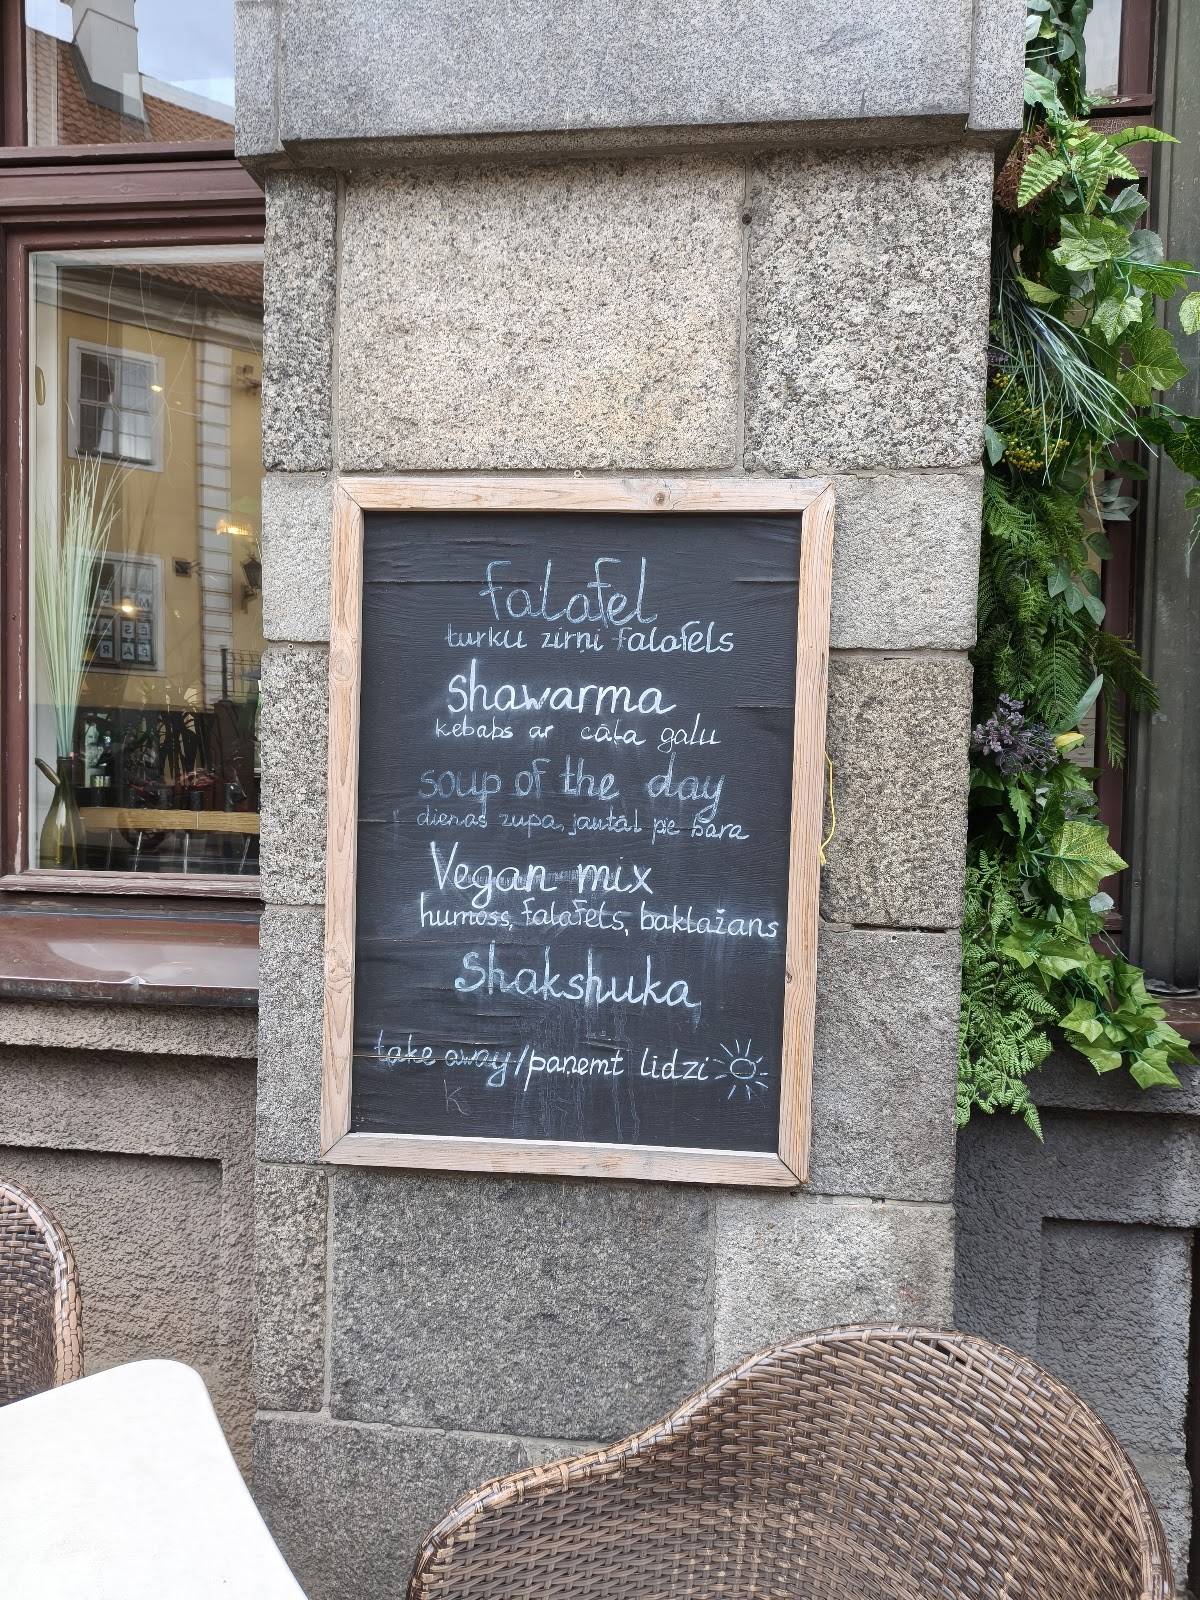 falafel
turku zirņi falafels
Shawarma
kebabs ar cāļa gaļu
soup of the day
dienas zupa, jautāt pie bāra
Vegan mix
humoss, falafels, baklažans
Shakshuka
take away/paņemt līdzi
K